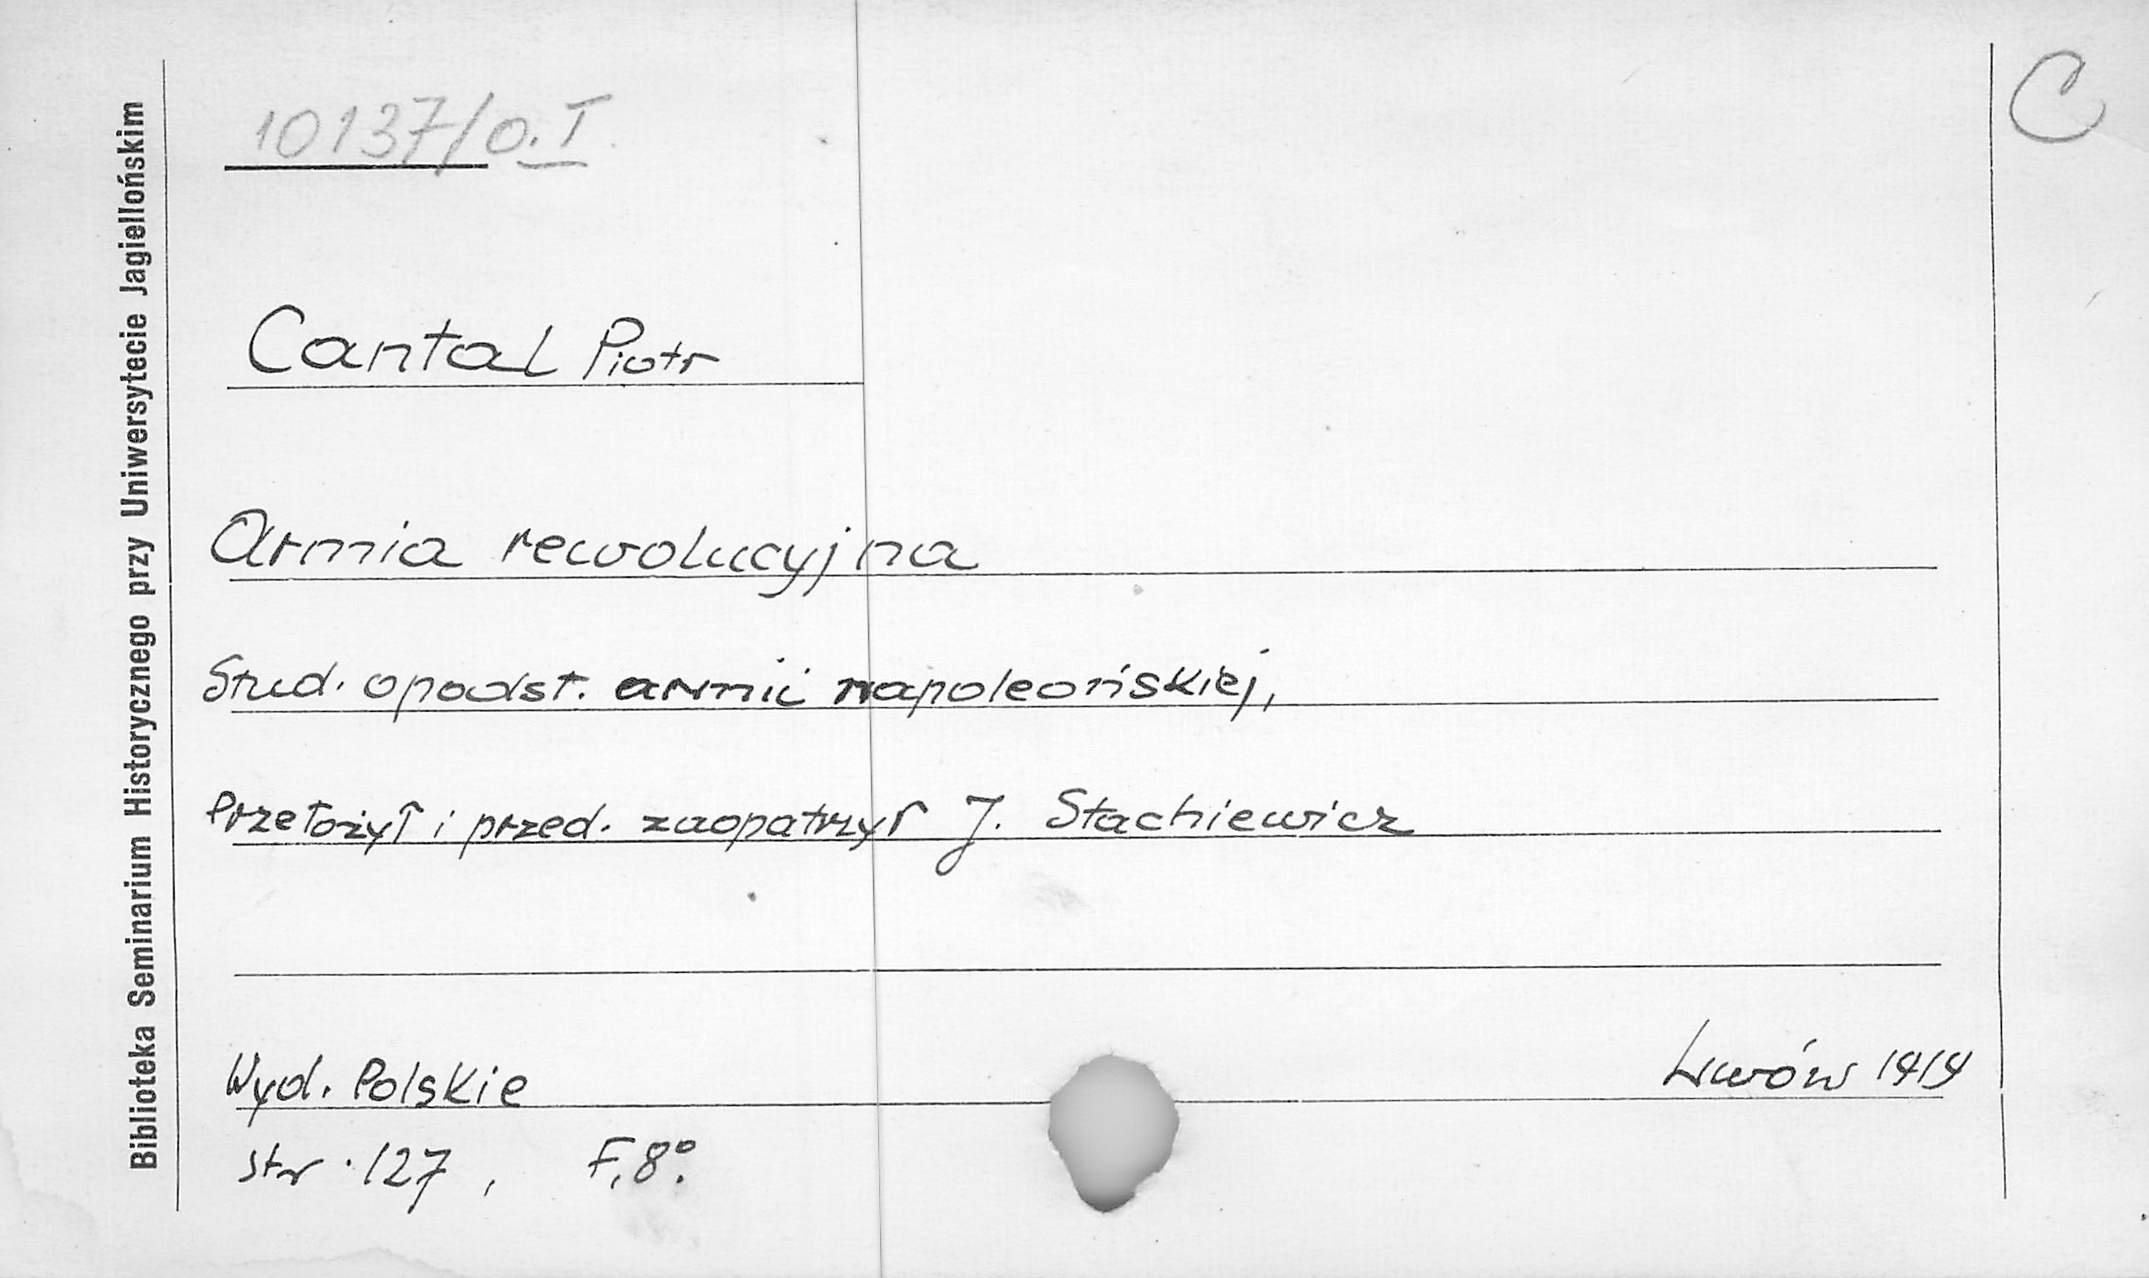 10137/o.I
C
Biblioteka Seminarium Historycznego przy Uniwersytecie Jagiellońskim
Cantal Piotr
Armia rewolucyjna
Stud. o podst. armii napoleońskiej,
Przełożył i przed. zaopatrzył J. Stachiewicz
Wyd. Polskie
Lwów 1919
str. 127, F. 8°.